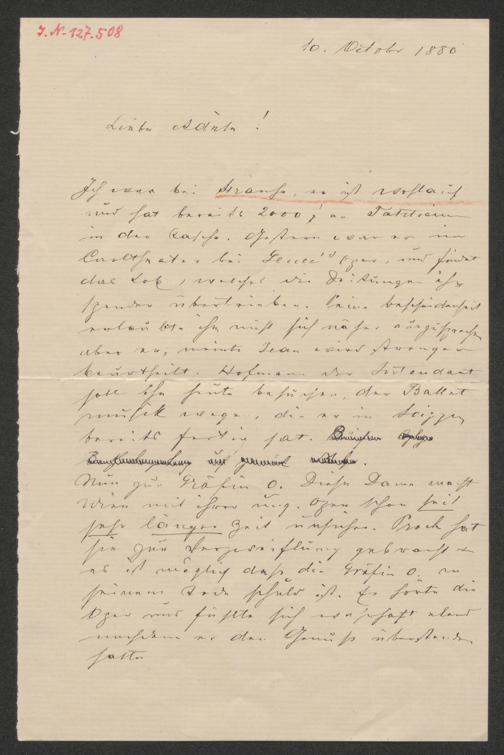 J.N. 127.508
10. October 1880
Liebe Adele!
Ich war bei Strauss, er ist wohlauf
und hat bereits 2000 an Tantiemen
in der Tasche. Gestern war er im
Carltheater bei Oper, und findet
das Lob, welches die Zeitungen ihr
spenden übertrieben. Seine Bescheidenheit
erlaubte ihm nicht sich näher auszusprechen
aber er, meinte Jean wird strenger
beurtheilt. Hofmann der Intendant
soll ihn heute besuchen, der Ballet
musik wegen, die er in Skizzen
bereits fertig hat.
Nun zur Gräfin O. Diese Dame macht
Wien mit ihrer ung. Oper schon seit
sehr langer Zeit unsicher. Proch hat
sie zur Verzweiflung gebracht &
es ist möglich dass die Gräfin O. an
seinem Tode schuld ist. Er hörte die
Oper und fühlte sich elend
nachdem er den Genuss überstanden
hatte